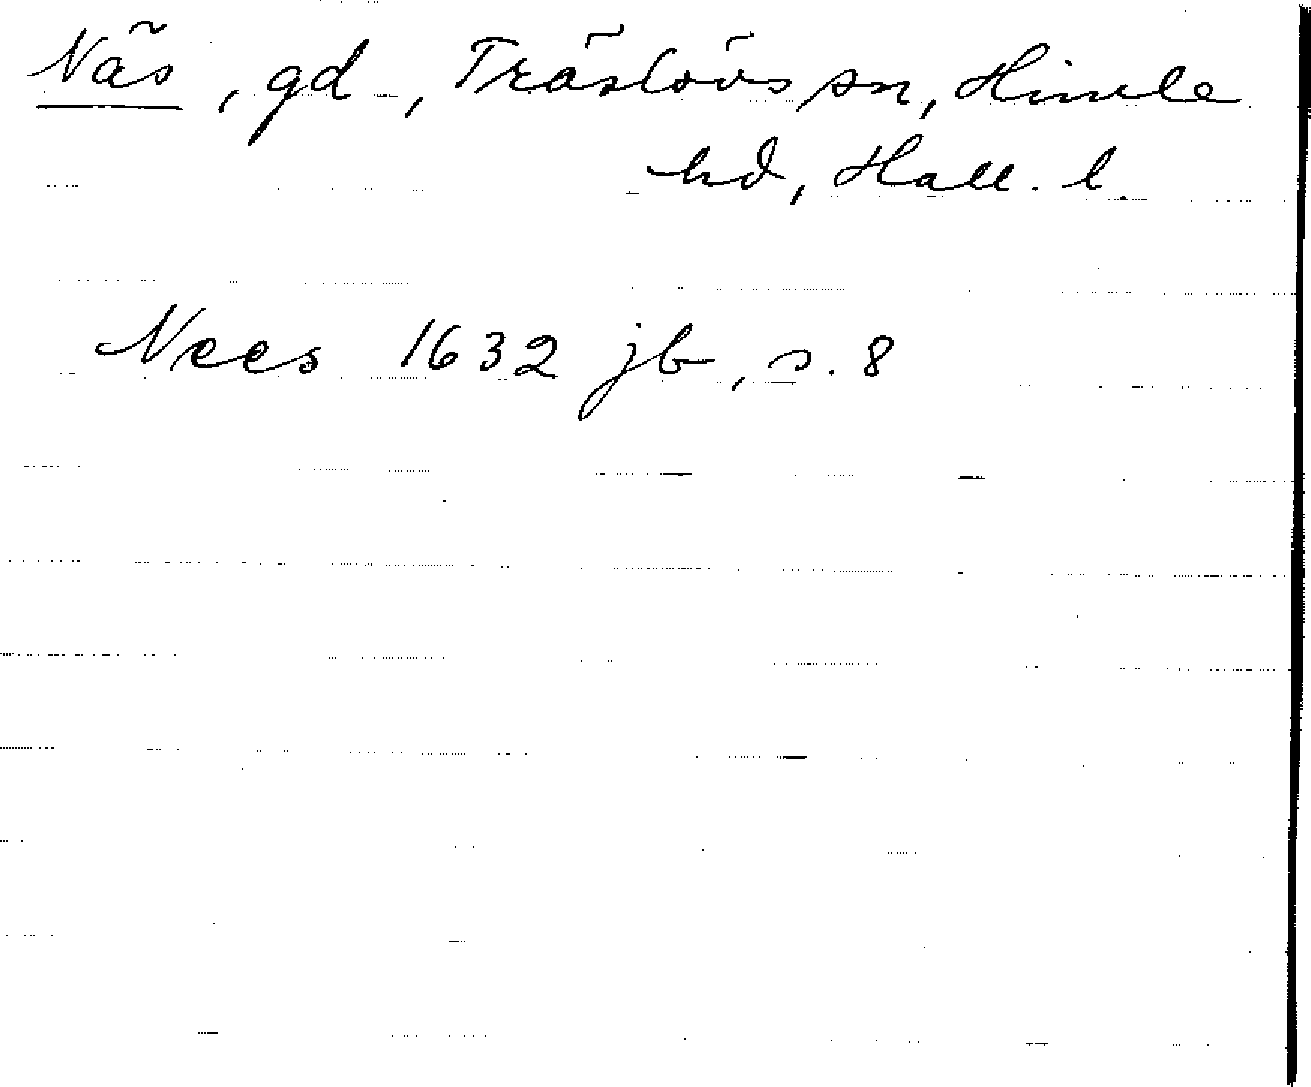 Näs, gd, Träslövs sn, Himle
hd, Hall. l.
Nees 1632 jb, s. 8